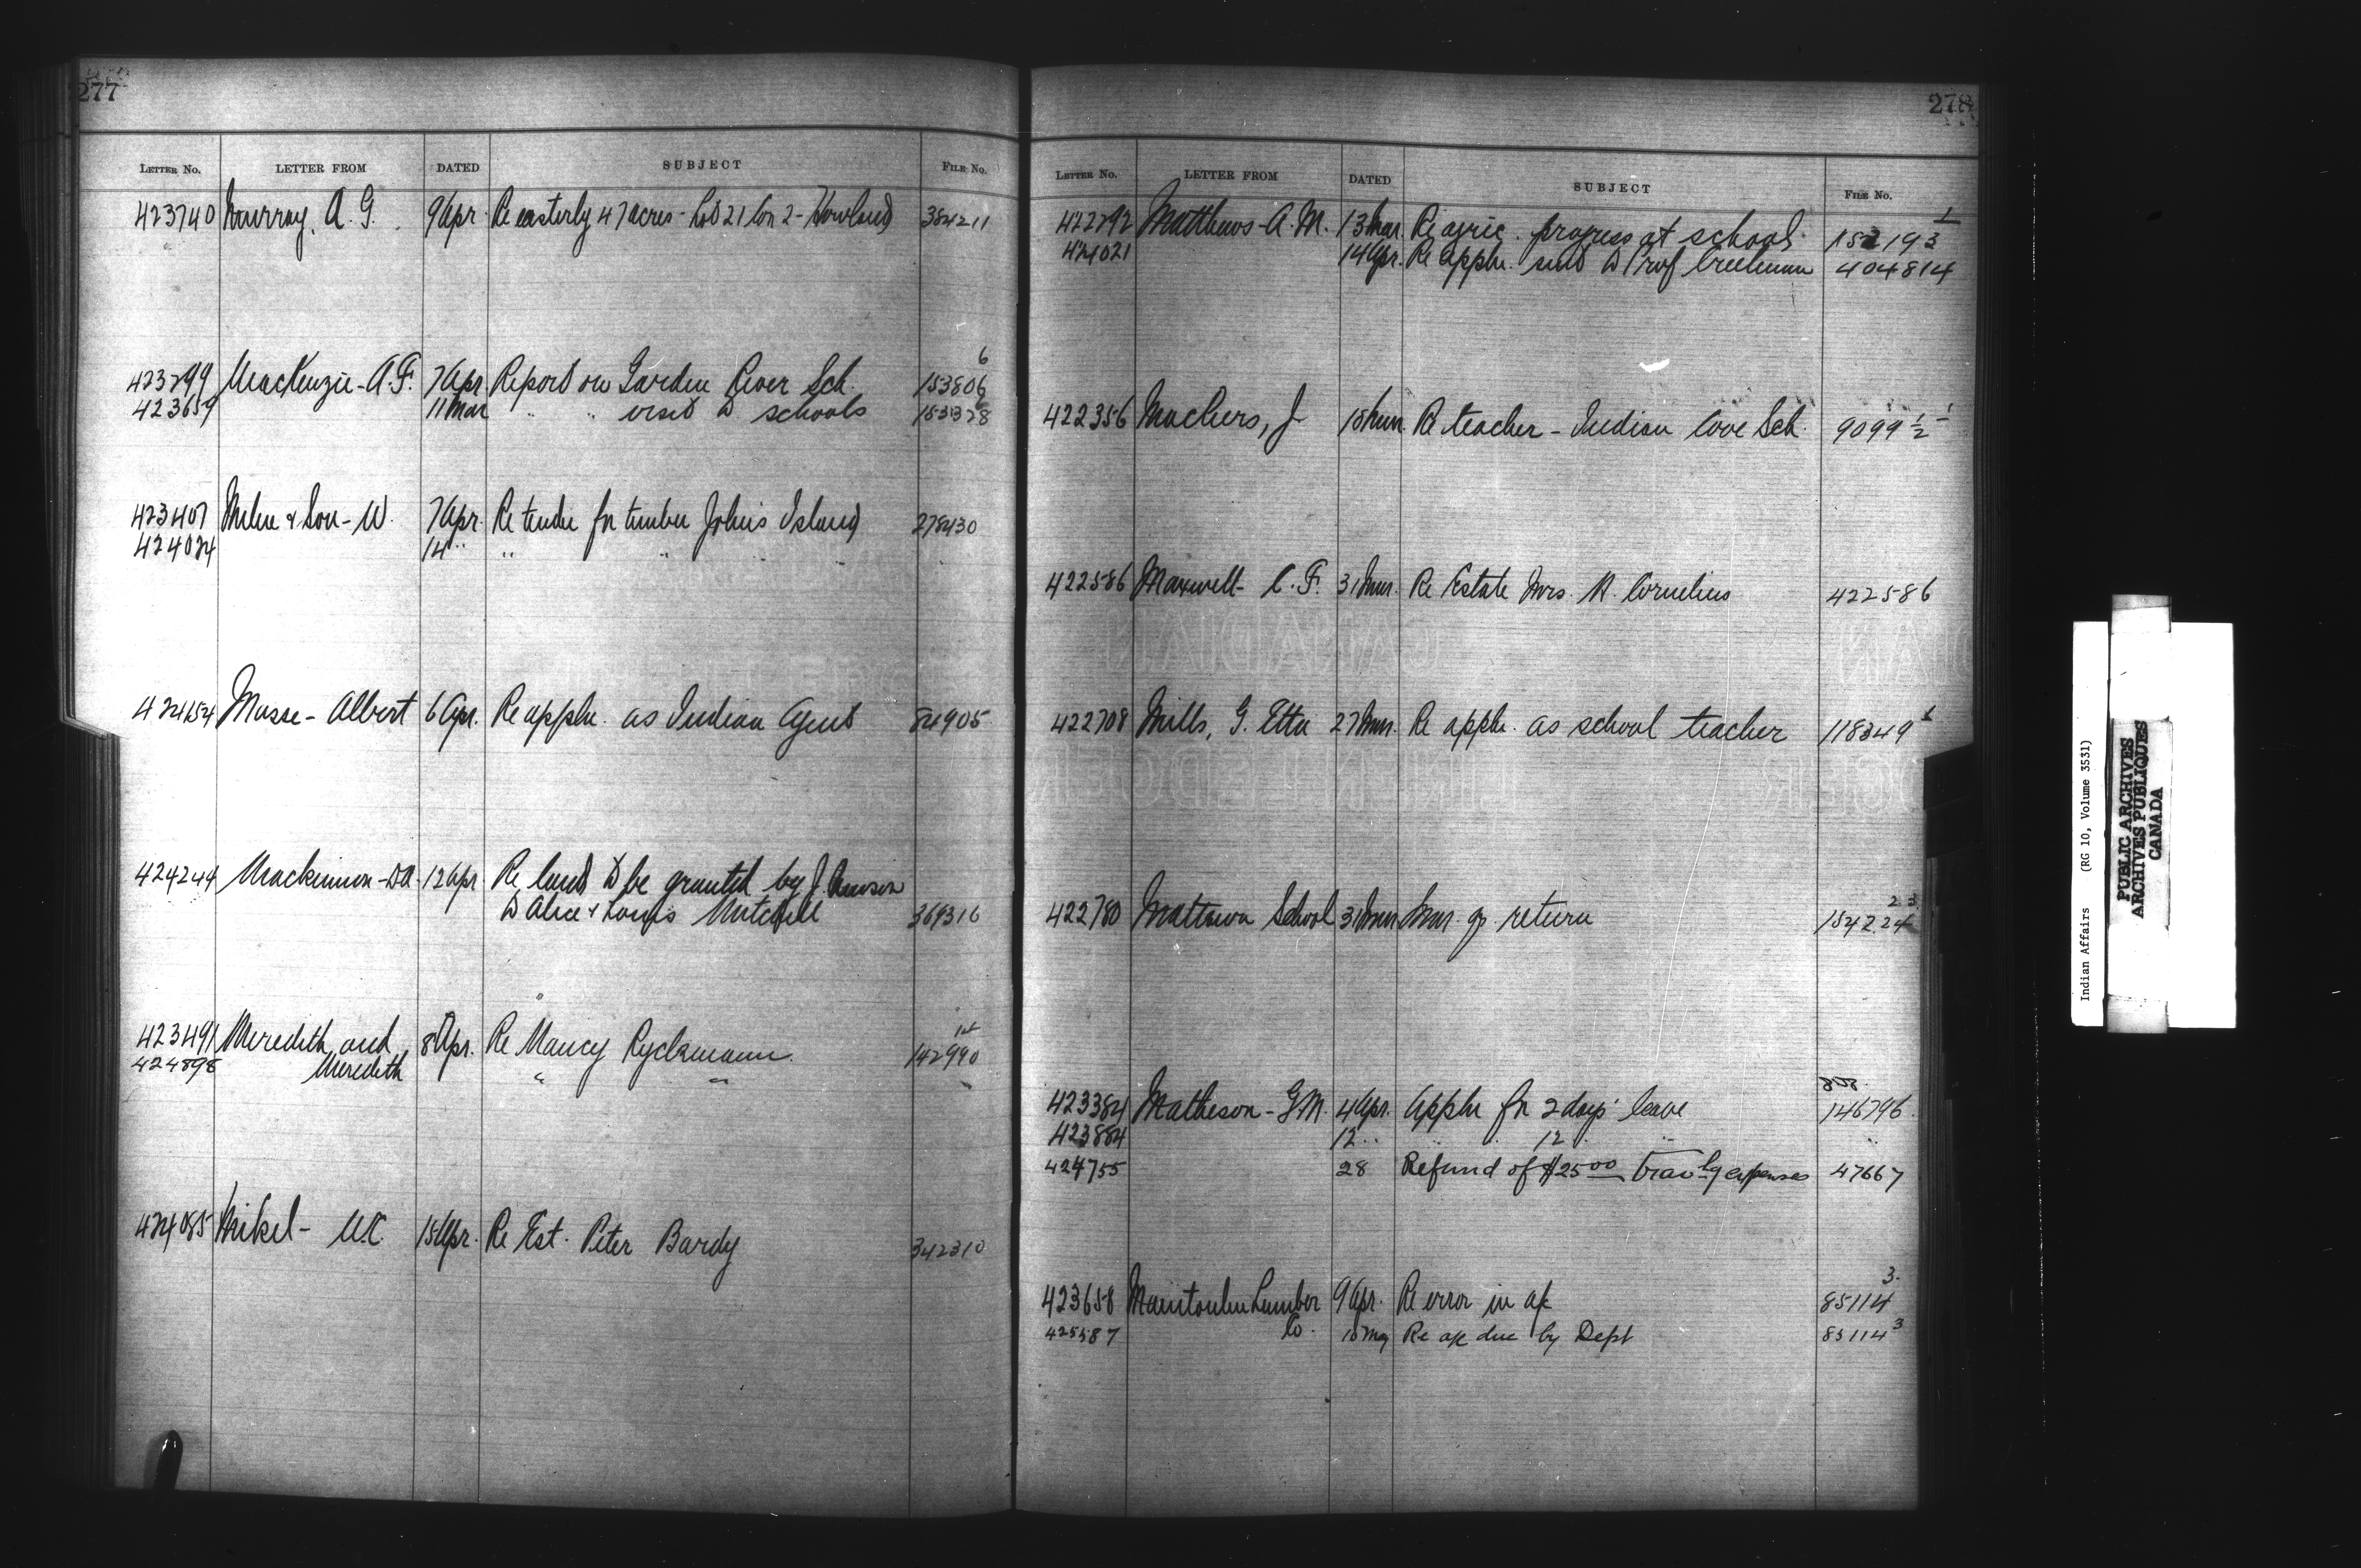 277
LETTER No. LETTER FROM DATED SUBJECT FILE No.
423740 Murray, A. G. 9 Apr. Re easterly 47 acres - Lot 21 Con 2 - Howland 384211
6
423299 MacKenzie - A.F. 7 Apr. Report on Garden River Sch. 153806
423659 11 Mar " " visit to schools 153328
423407 Milne & Son - W. 7 Apr. Re tender for timber Johns Island 278430
424024 14 " " " "
424154 Masse - Albert 6 Apr. Re appln. as Indian Agent 84905
424244 Mackinnon - DA 12 Apr Re land to be granted by J.
to Alice & Louis Mitchell 369316
1st
423491 Meredith and 8 Apr. Re Nancy Ryckmann 142990
424898 Meredith " "
424085 Mikel - W.C. 15 Apr. Re Est. Peter Bardy 342310
278
LETTER No. LETTER FROM DATED SUBJECT FILE No.
1
422292 Matthews - A. M. 13 Mar. Re agric. progress at school. 152193
424021 14 Apr. Re appln. sent to Prof Creelman 404814
422356 Machers, J Re teacher - Indian Cove Sch. 9099 1/2 - 1
422586 Maxwell - C. F. 31 Mar. Re Estate Mrs. R. Cornelius 422586
422708 Mills, G. Etta 27 Mar. Re appln. as school teacher 118349 1
23
422780 Mattawa School 31 Mar. Mar. qr. return 154224
423384 Matheson - G.M. 4 Apr. Appln for 2 days' leave 146796.
423884 12 " " " 12 " " "
424755 28 Refund of $25 00 Travlg expenses 47667
3.
423658 Manitoulin Lumber 9 Apr. Re error in a/c 85114
425587 Co. 10 May Re a/c due by Dept 85114 3
CANADIAN
LINEN LEDGER
Indian Affairs (RG 10, Volume 3531)
PUBLIC ARCHIVES
ARCHIVES PUBLIQUES
CANADA